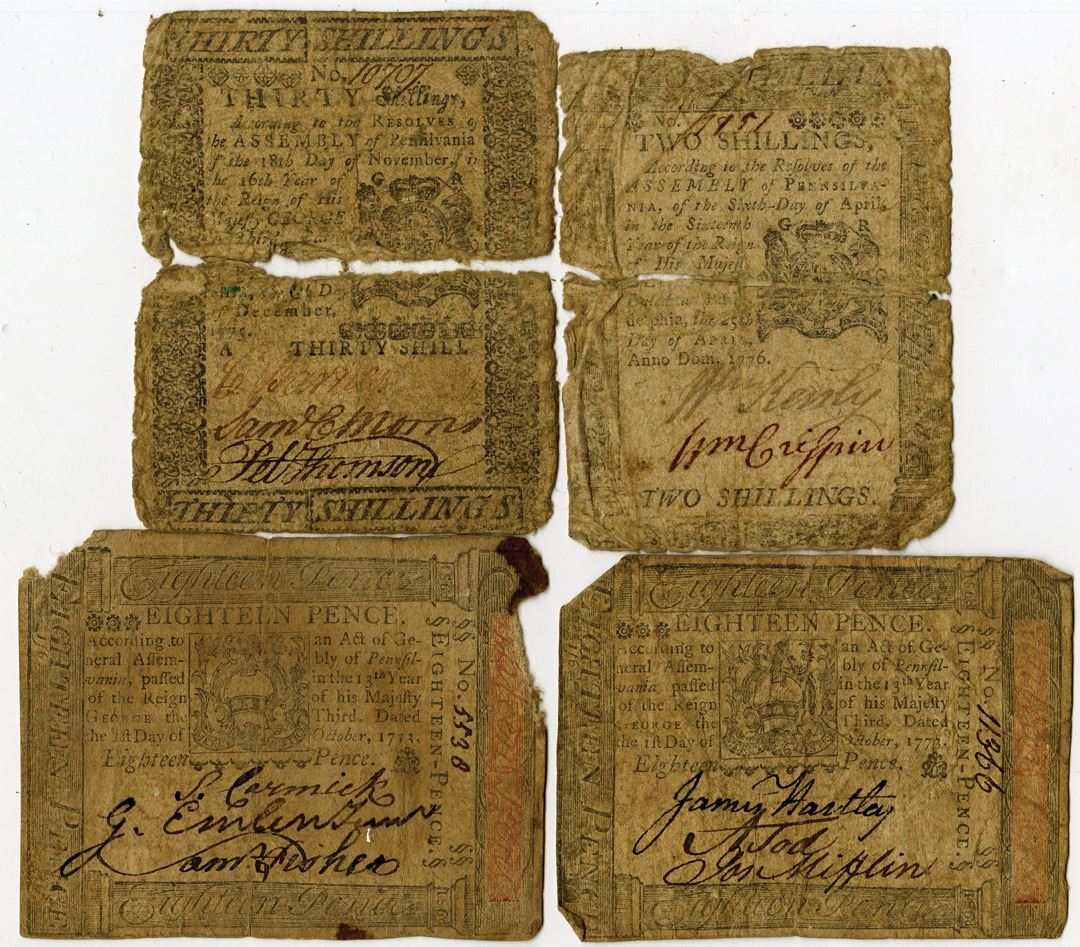 THIRTY SHILLINGS
No. 10707
THIRTY Shillings,
According to the RESOLVES o
he ASSEMBLY of Pennsilvania
f the 18th Day of November, in
he 16th Year of
the Reign of His
Majesty GEORGE
G R
D
of December,
1775.
A THIRTY SHILL
Sam. C. Morris
Pet Thomson
THIRTY SHILLINGS
SHILLIN
No. 1751
TWO SHILLINGS,
According to the Resolves of the
ASSEMBLY of PENNSILVA-
NIA, of the Sixth-Day of April,
in the Sixteenth
Year of the Reign
of His Majest
G R
delphia, the 25th
Day of APRIL,
Anno Dom, 1776.
Wm Crispin
TWO SHILLINGS.
Eighteen Pence
EIGHTEEN PENCE.
According to an Act of Ge-
neral Assem- bly of Pennsil-
vania, passed in the 13th Year
of the Reign of his Majesty
GEORGE the Third. Dated
the 1st Day of October, 1773.
Eighteen Pence.
S. Cormick
G. Emlen Junr
Sam Fisher
Eighteen Pence
EIGHTEEN PENCE
§§ EIGHTEEN-PENCE §§
No. 5538
Eighteen Pence
EIGHTEEN PENCE.
According to an Act of Ge-
neral Assem- bly of Pennsil-
vania, passed in the 13th Year
of the Reign of his Majesty
GEORGE the Third. Dated
the 1st Day of October, 1773.
Eighteen Pence.
James Hartley
A Tod
Jos Mifflin
Eighteen Pence
EIGHTEEN PENCE
§§ EIGHTEEN-PENCE §§
No. 11366